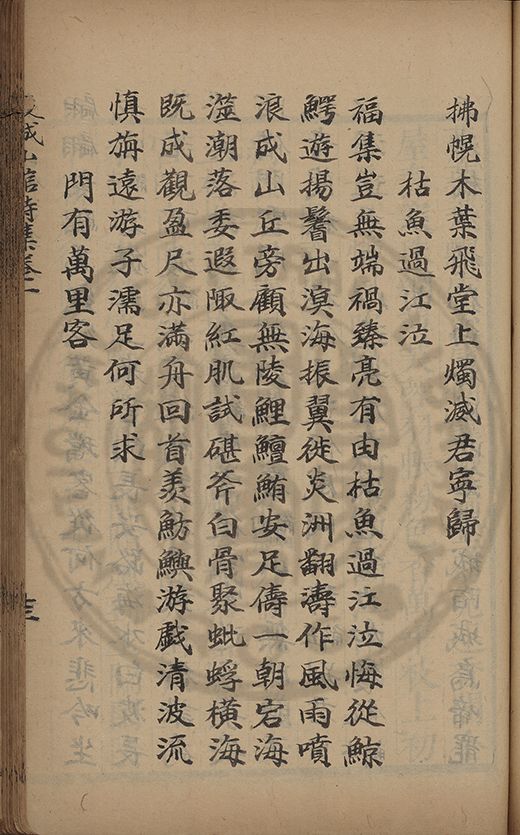 拂幌木葉飛堂上燭滅君寧歸
枯魚過江泣
福集豈無端禍臻亮有由枯魚過江泣悔從鯨
鰐遊揚鬐出溟海振翼徙炎洲翻濤作風雨噴
浪成山丘旁顧無陵鯉鱣鮪安足儔一朝宕海
澨潮落委遐陬紅肌試碪斧白骨聚蚍蜉橫海
既成觀盈尺亦滿舟回首羨魴鱮游戲清波流
慎旃遠游子濡足何所求
門有萬里客
成山信詩集卷一
三